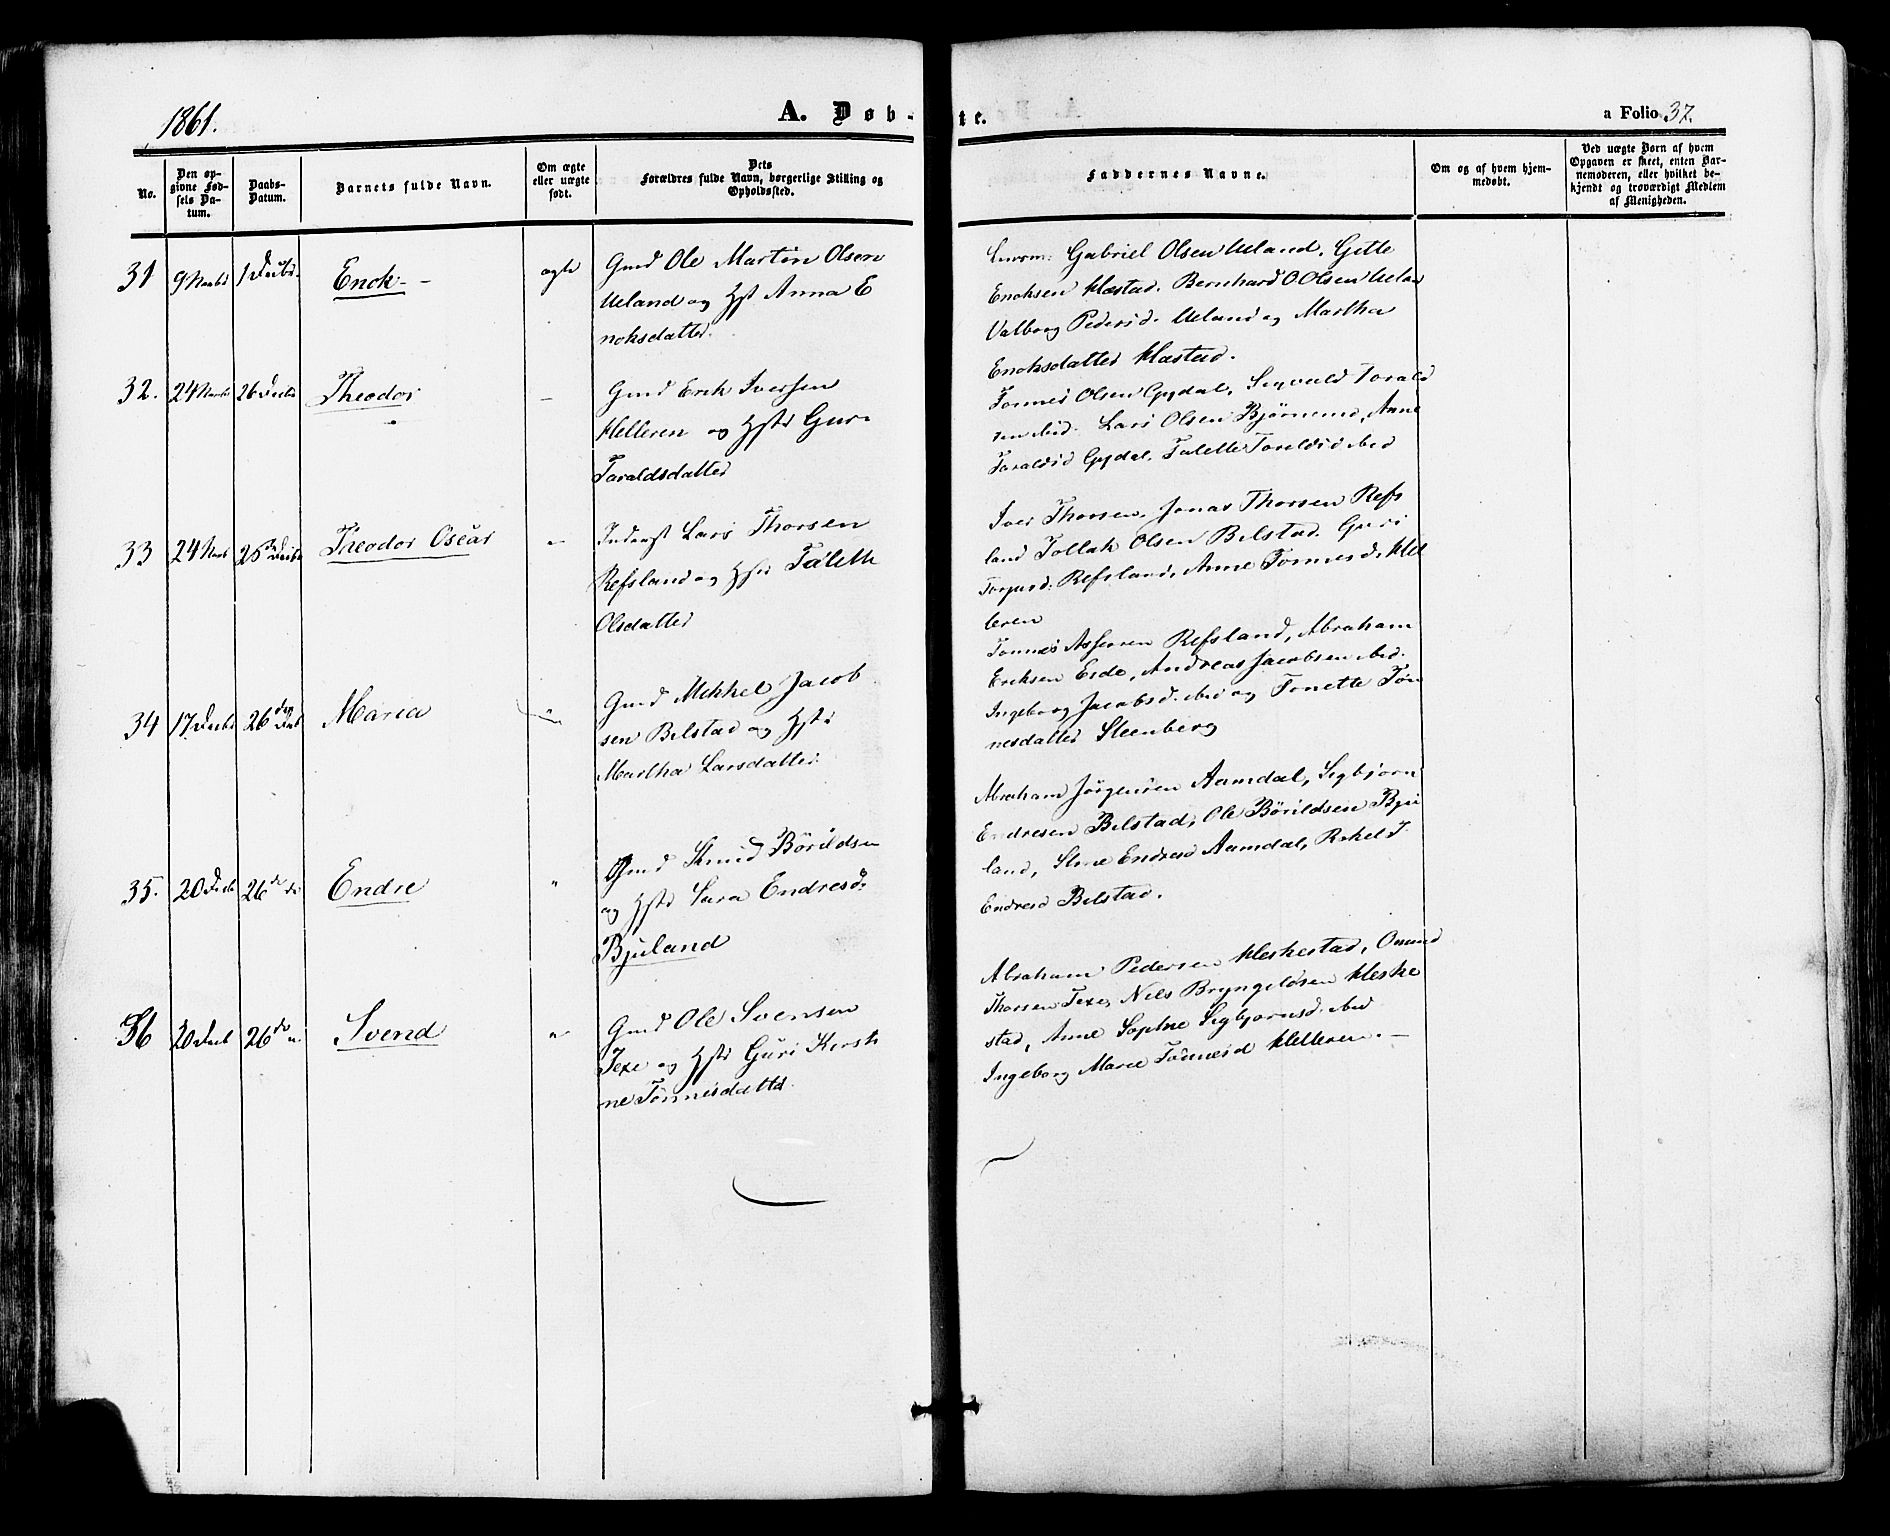 1861.
A. Døb-
te.
a Folio 37.
No.
Den op-
givne Fød-
sels Da-
tum.
Daabs-
Datum.
Barnets fulde Navn.
Om ægte
eller uægte
født.
Dets
Forældres fulde Navn, borgerlige Stilling og
Opholdssted.
Faddernes Navne.
Om og af hvem hjem-
medøbt.
Ved uægte Børn af hvem
Opgaven er skeet, enten Bar-
nemoderen, eller hvilket be-
kjendt og troværdigt Medlem
af Menigheden.
31
9 Novbr
1 Decbr.
Enok
ægte
Gmd Ole Martin Olsen
Ueland og Hst Anna E
noksdatter.
Gabriel Olsen Ueland. Gitte
Enoksen Hæstad. Bernhard O Olsen Uelan
Valborg Pedersd. Ueland og Martha
Enoksdatter Hæstad.
32.
24 Novbr
26 Decbr
Theodor
Gmd Erik Iversen
Helleren og Hstr Guri
Taraldsdatter
Tonnes Olsen Gydal, Sigvald Torald
sen ibid. Lars Olsen Bjørnemo, Anne
Taraldsd Gydal, Talette Toraldsd ibid
33
24 Novb
25 Decbr
Theodor Oscar
Inderst Lars Thorsen
Refsland og Hstr Talette
Olsdatter
Iver Thorsen, Jonas Thorsen Refs
land Tollak Olsen Bilstad. Guri
Torgersd. Refsland, Anne Tonnesd. Hel
leren
34
17 Decbr
26 Decb
Maria
Gmd Mikkel Jacob
sen Bilstad og Hstr
Martha Larsdatter
Tonnes Assersen Refsland, Abraham
Eriksen Eide, Andreas Jacobsen ibid.
Ingeborg Jacobsd. ibid og Tonette Tøn
nesdatter Steenberg
35.
20 Decb
26 do
Endre
Gmd Knud Børildsen
og Hstr Sara Endresd.
Bjuland
Abraham Jørgensen Aamdal, Sigbjørn
Endresen Bilstad, Ole Børildsen Bju
land, Stine Endresd Aamdal, Rakel T
Endresd Bilstad.
36
20 Decb
26 do
Svend
Gmd Ole Svensen
Texe og Hstr Guri Kirsti
ne Tønnesdatter
Abraham Pedersen Heskestad, Omund
Thorsen Texe, Nils Bryngelsen Heske
stad, Anne Sophie Sigbjørnsd. ibid
Ingeborg Marie Tønnesd Helleren. —